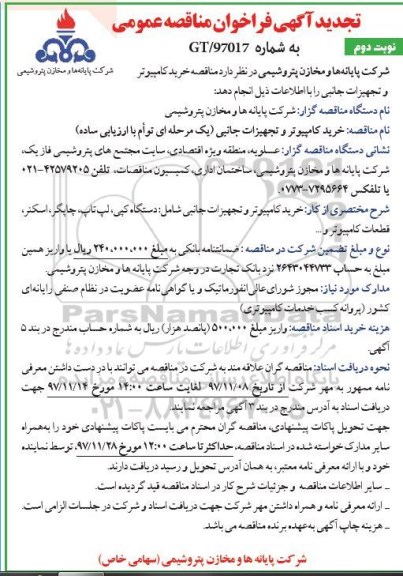 تجدید آگهی فراخوان مناقصه عمومی
نوبت دوم
به شماره GT/97017
شرکت پایانه‌ها و مخازن پتروشیمی
شرکت پایانه‌ها و مخازن پتروشیمی در نظر دارد مناقصه خرید کامپیوتر
و تجهیزات جانبی را با اطلاعات ذیل انجام دهد:
نام دستگاه مناقصه گزار: شرکت پایانه ها و مخازن پتروشیمی
نام مناقصه: خرید کامپیوتر و تجهیزات جانبی (یک مرحله ای توأم با ارزیابی ساده)
نشانی دستگاه مناقصه گزار: عسلویه، منطقه ویژه اقتصادی، سایت مجتمع های پتروشیمی فاز یک،
شرکت پایانه ها و مخازن پتروشیمی، ساختمان اداری، کمیسیون مناقصات، تلفن ۴۲۵۷۹۲۰۵-۰۲۱
یا تلفکس ۷۲۹۵۶۶۴-۰۷۷۳
شرح مختصری از کار: خرید کامپیوتر و تجهیزات جانبی شامل: دستگاه کپی، لپ تاپ، چاپگر، اسکنر،
قطعات کامپیوتر و...
نوع و مبلغ تضمین شرکت در مناقصه : ضمانتنامه بانکی به مبلغ ۲۴۰,۰۰۰,۰۰۰ ریال یا واریز همین
مبلغ به حساب ۲۶۴۳۰۴۴۷۳۳ نزد بانک تجارت در وجه شرکت پایانه ها و مخازن پتروشیمی.
مدارک مورد نیاز: مجوز شورای عالی انفورماتیک و یا گواهی نامه عضویت در نظام صنفی رایانه ای
کشور (پروانه کسب خدمات کامپیوتری)
هزینه خرید اسناد مناقصه: واریز مبلغ ۵۰۰,۰۰۰ (پانصد هزار) ریال به شماره حساب مندرج در بند ۵
آگهی.
نحوه دریافت اسناد: مناقصه گران علاقه مند به شرکت در مناقصه می توانند با در دست داشتن معرفی
نامه ممهور به مهر شرکت از تاریخ ۹۷/۱۱/۰۸ لغایت ساعت ۱۴:۰۰ مورخ ۹۷/۱۱/۱۴ جهت
دریافت اسناد به آدرس مندرج در بند ۳ آگهی مراجعه نمایند.
جهت تحویل پاکات پیشنهادی، مناقصه گران محترم می بایست پاکات پیشنهادی خود را به همراه
سایر مدارک خواسته شده در اسناد مناقصه، حداکثر تا ساعت ۱۲:۰۰ مورخ ۹۷/۱۱/۲۸، توسط نماینده
خود و با ارائه معرفی نامه معتبر، به همان آدرس تحویل و رسید دریافت دارند.
ـ سایر اطلاعات مناقصه و جزئیات شرح کار در اسناد مناقصه قید گردیده است.
ـ ارائه معرفی نامه و همراه داشتن مهر شرکت جهت دریافت اسناد و شرکت در جلسات الزامی است.
ـ هزینه چاپ آگهی به عهده برنده مناقصه می باشد.
شرکت پایانه ها و مخازن پتروشیمی (سهامی خاص)